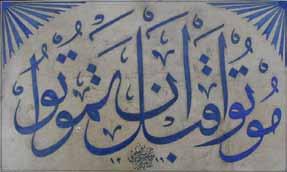 موتوا قبل ان تموتوا